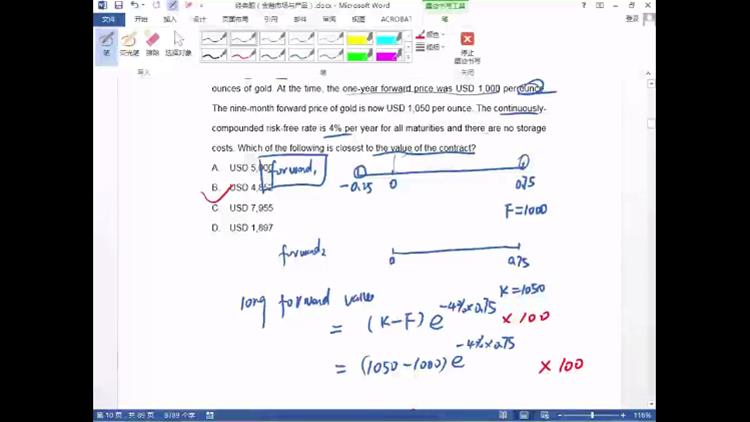 经典题（金融市场与产品）.docx - Microsoft Word
文件 开始 插入 设计 页面布局 引用 邮件 审阅 视图 ACROBAT 笔 登录
笔 荧光笔 橡皮擦 选择对象 颜色 粗细 停止墨迹书写
写入 笔 关闭
ounces of gold. At the time, the one-year forward price was USD 1,000 per ounce.
The nine-month forward price of gold is now USD 1,050 per ounce. The continuously-
compounded risk-free rate is 4% per year for all maturities and there are no storage
costs. Which of the following is closest to the value of the contract?
A. USD 5,000
forward₁
B. USD 4,852
-0.25 0 0.75
C. USD 7,955
F=1000
D. USD 1,897
forward₂
0 0.75
K=1050
long forward value
= (K-F) e^-4%×0.75 ×100
= (1050-1000) e^-4%×0.75 ×100
第 10 页，共 89 页 8789 个字 116%